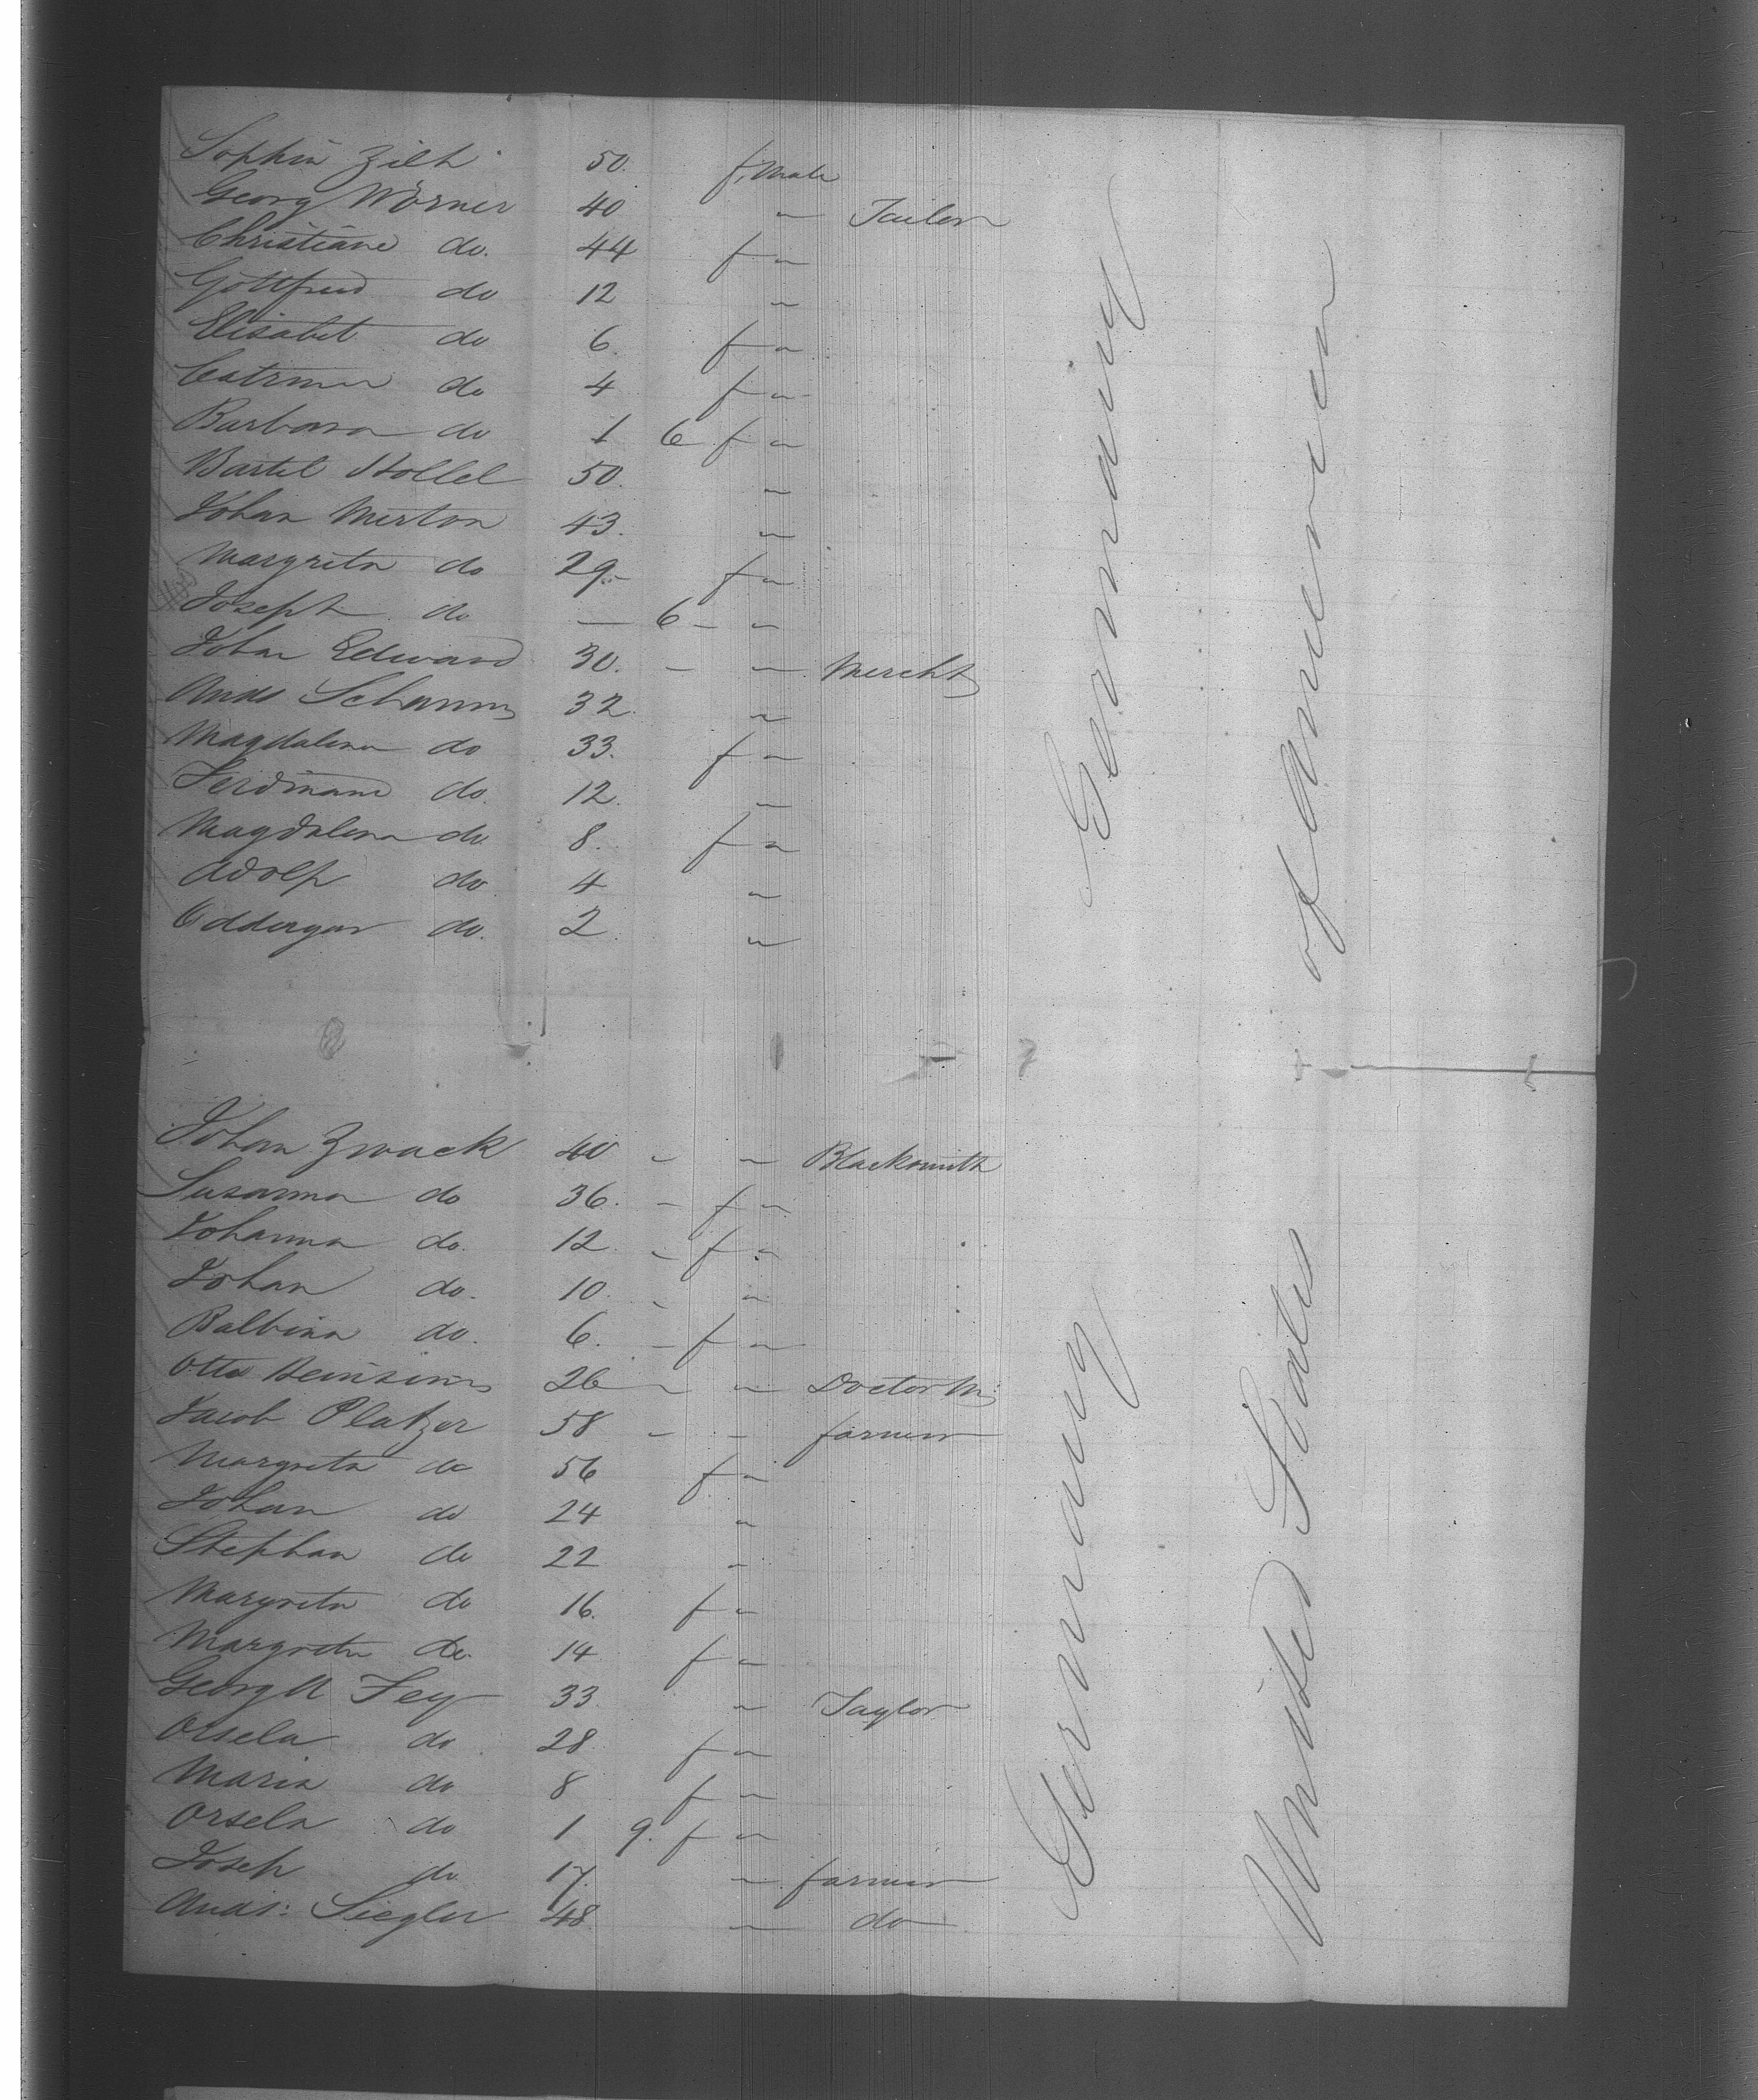 Sophia Zilh 50. f. Male
Georg Wörner 40 " Tailor
Christiane do. 44 f "
Gottfried do 12 "
Elisabet do 6. f "
Catrina do 4 f "
Barbara do 1 6 f "
Bartel Hollel 50. "
Johan Merton 43. "
Margreta do 29 f "
Joseph do — 6 – "
Johan Edward 30. – " Mercht
Ands Schamm 32. "
Magdalena do 33. f "
Ferdinand do. 12. "
Magdalena do 8. f "
Adolf do 4 "
do. 2. "
Johan Zwack 40 – " Blacksmith
Susanna do 36. – f "
Johanna do. 12. – f "
Johan do. 10. – "
Balbina do. 6. – f "
Otto 26 – " Doctor M:
Jacob Platzer 58 – – farmer
Margreta do 56 f "
Johan do 24 "
Stephan do 22 "
Margreta do 16. f "
Margreta do. 14 f "
Georg A Fey 33 " Taylor
Orsela do 28 f "
Maria do 8 f "
Orsela do 1 9. f "
Joseh do 17. " farmer
Ands: Siegler 48 " do
Germany
Germany
United States of America